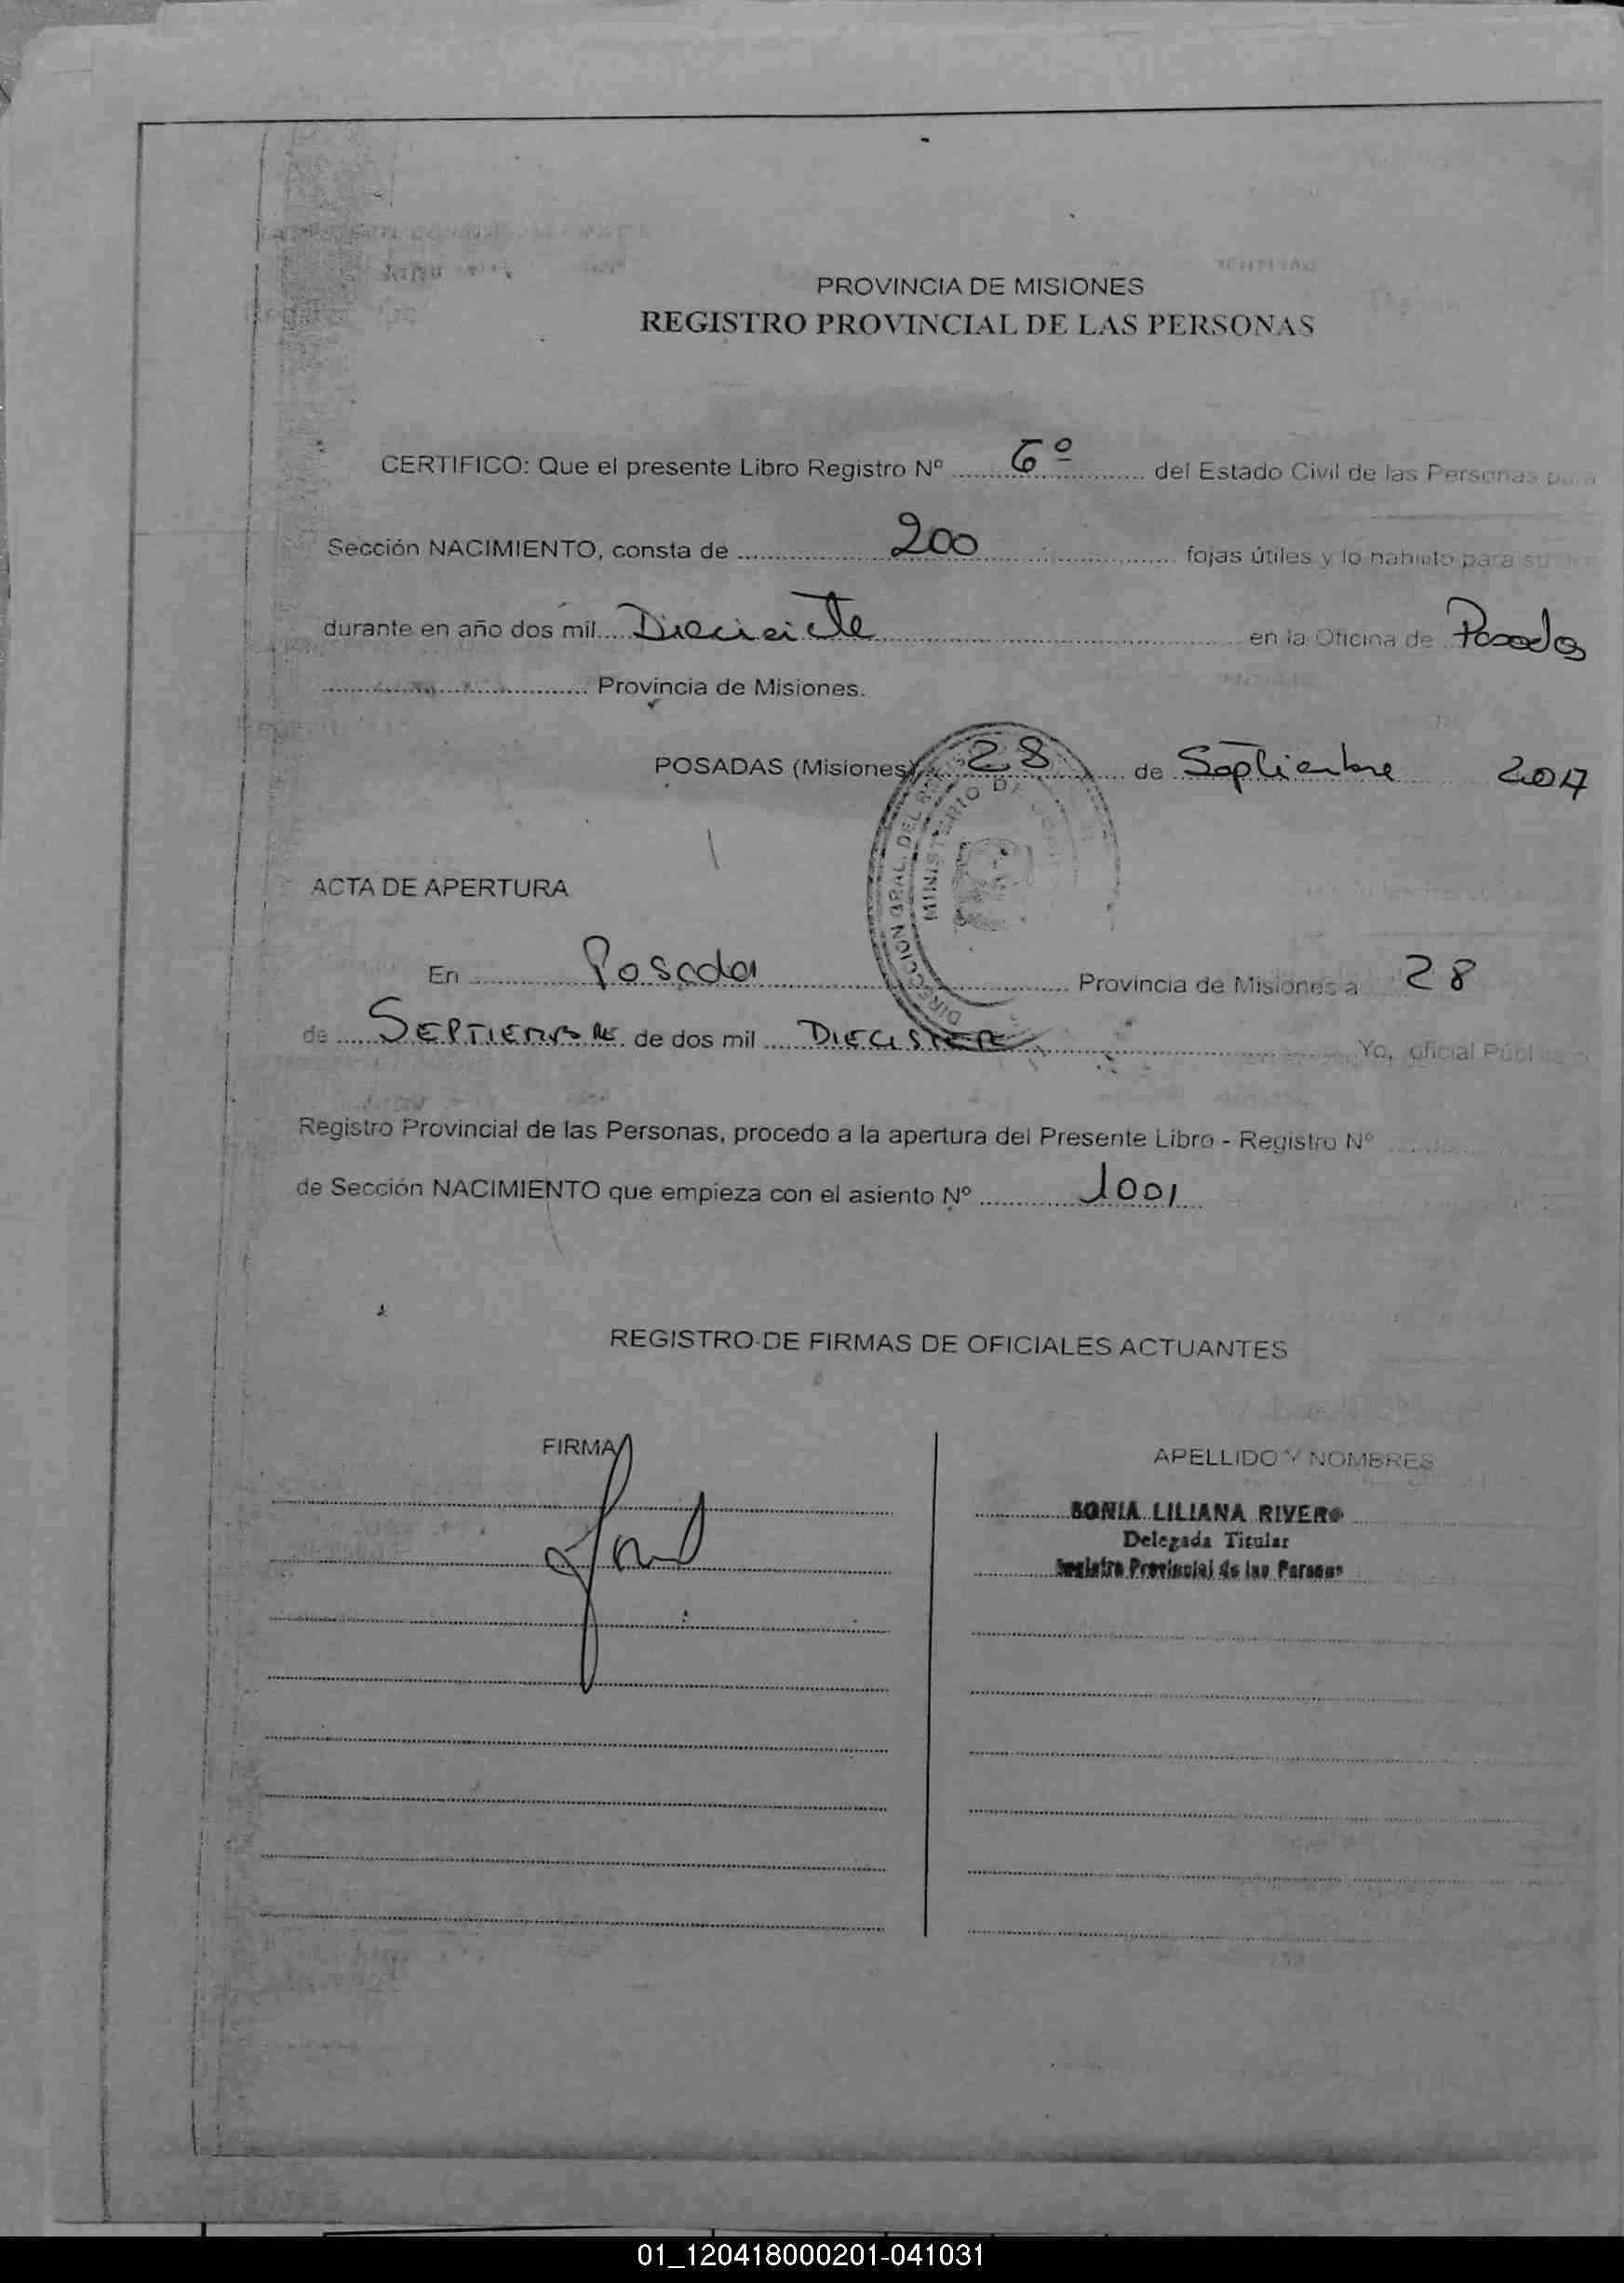 PROVINCIA DE MISIONES
REGISTRO PROVINCIAL DE LAS PERSONAS
CERTIFICO: Que el presente Libro Registro Nº 6º del Estado Civil de las Personas para
Sección NACIMIENTO, consta de 200 fojas útiles y lo habilito para su
durante en año dos mil Diecisiete en la Oficina de Posadas
Provincia de Misiones.
POSADAS (Misiones) 28 de Septiembre 2017
DIRECCION GRAL. DEL
MINISTERIO DE
ACTA DE APERTURA
En Posadas Provincia de Misiones a 28
de SEPTIEMBRE de dos mil DIECISIETE Yo, oficial Público
Registro Provincial de las Personas, procedo a la apertura del Presente Libro - Registro Nº
de Sección NACIMIENTO que empieza con el asiento Nº 1001
REGISTRO DE FIRMAS DE OFICIALES ACTUANTES
FIRMA APELLIDO Y NOMBRES
SONIA LILIANA RIVERO
Delegada Titular
Registro Provincial de las Personas
01_120418000201-041031